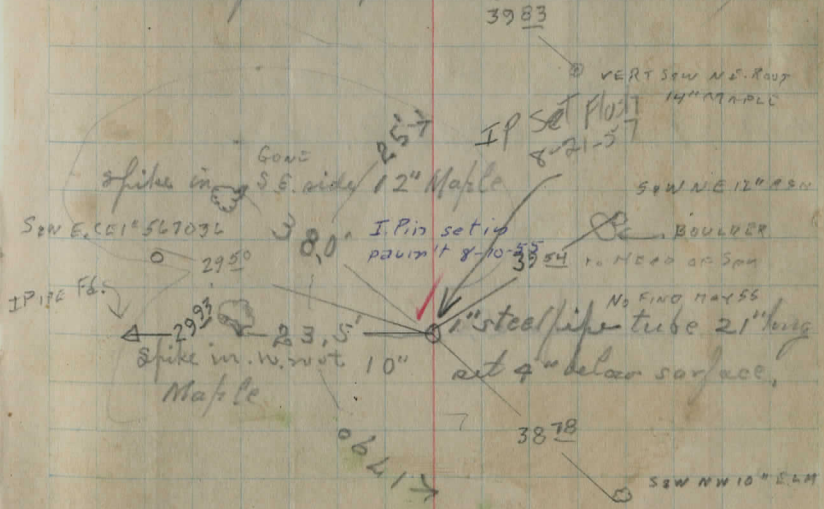 3983
VERT S&W N.E. ROOT
14" MAPLE
IP Set Flush
8-21-57
25'7
GONE
Spike in S.E. side 12" Maple
S&W N E 12" ASH
S&W E. CEI # 567036
38,0'
I.Pin set in
pavm't 8-10-55
BOULDER
2950
3954 to HEAD OF Spk
IPIPE Fd.
NO FIND MAY 55
2993
23,5'
1" steel pipe tube 21" long
Spike in W. root 10"
set 4" below surface,
Maple
3878
17 90
S&W NW 10" ELM